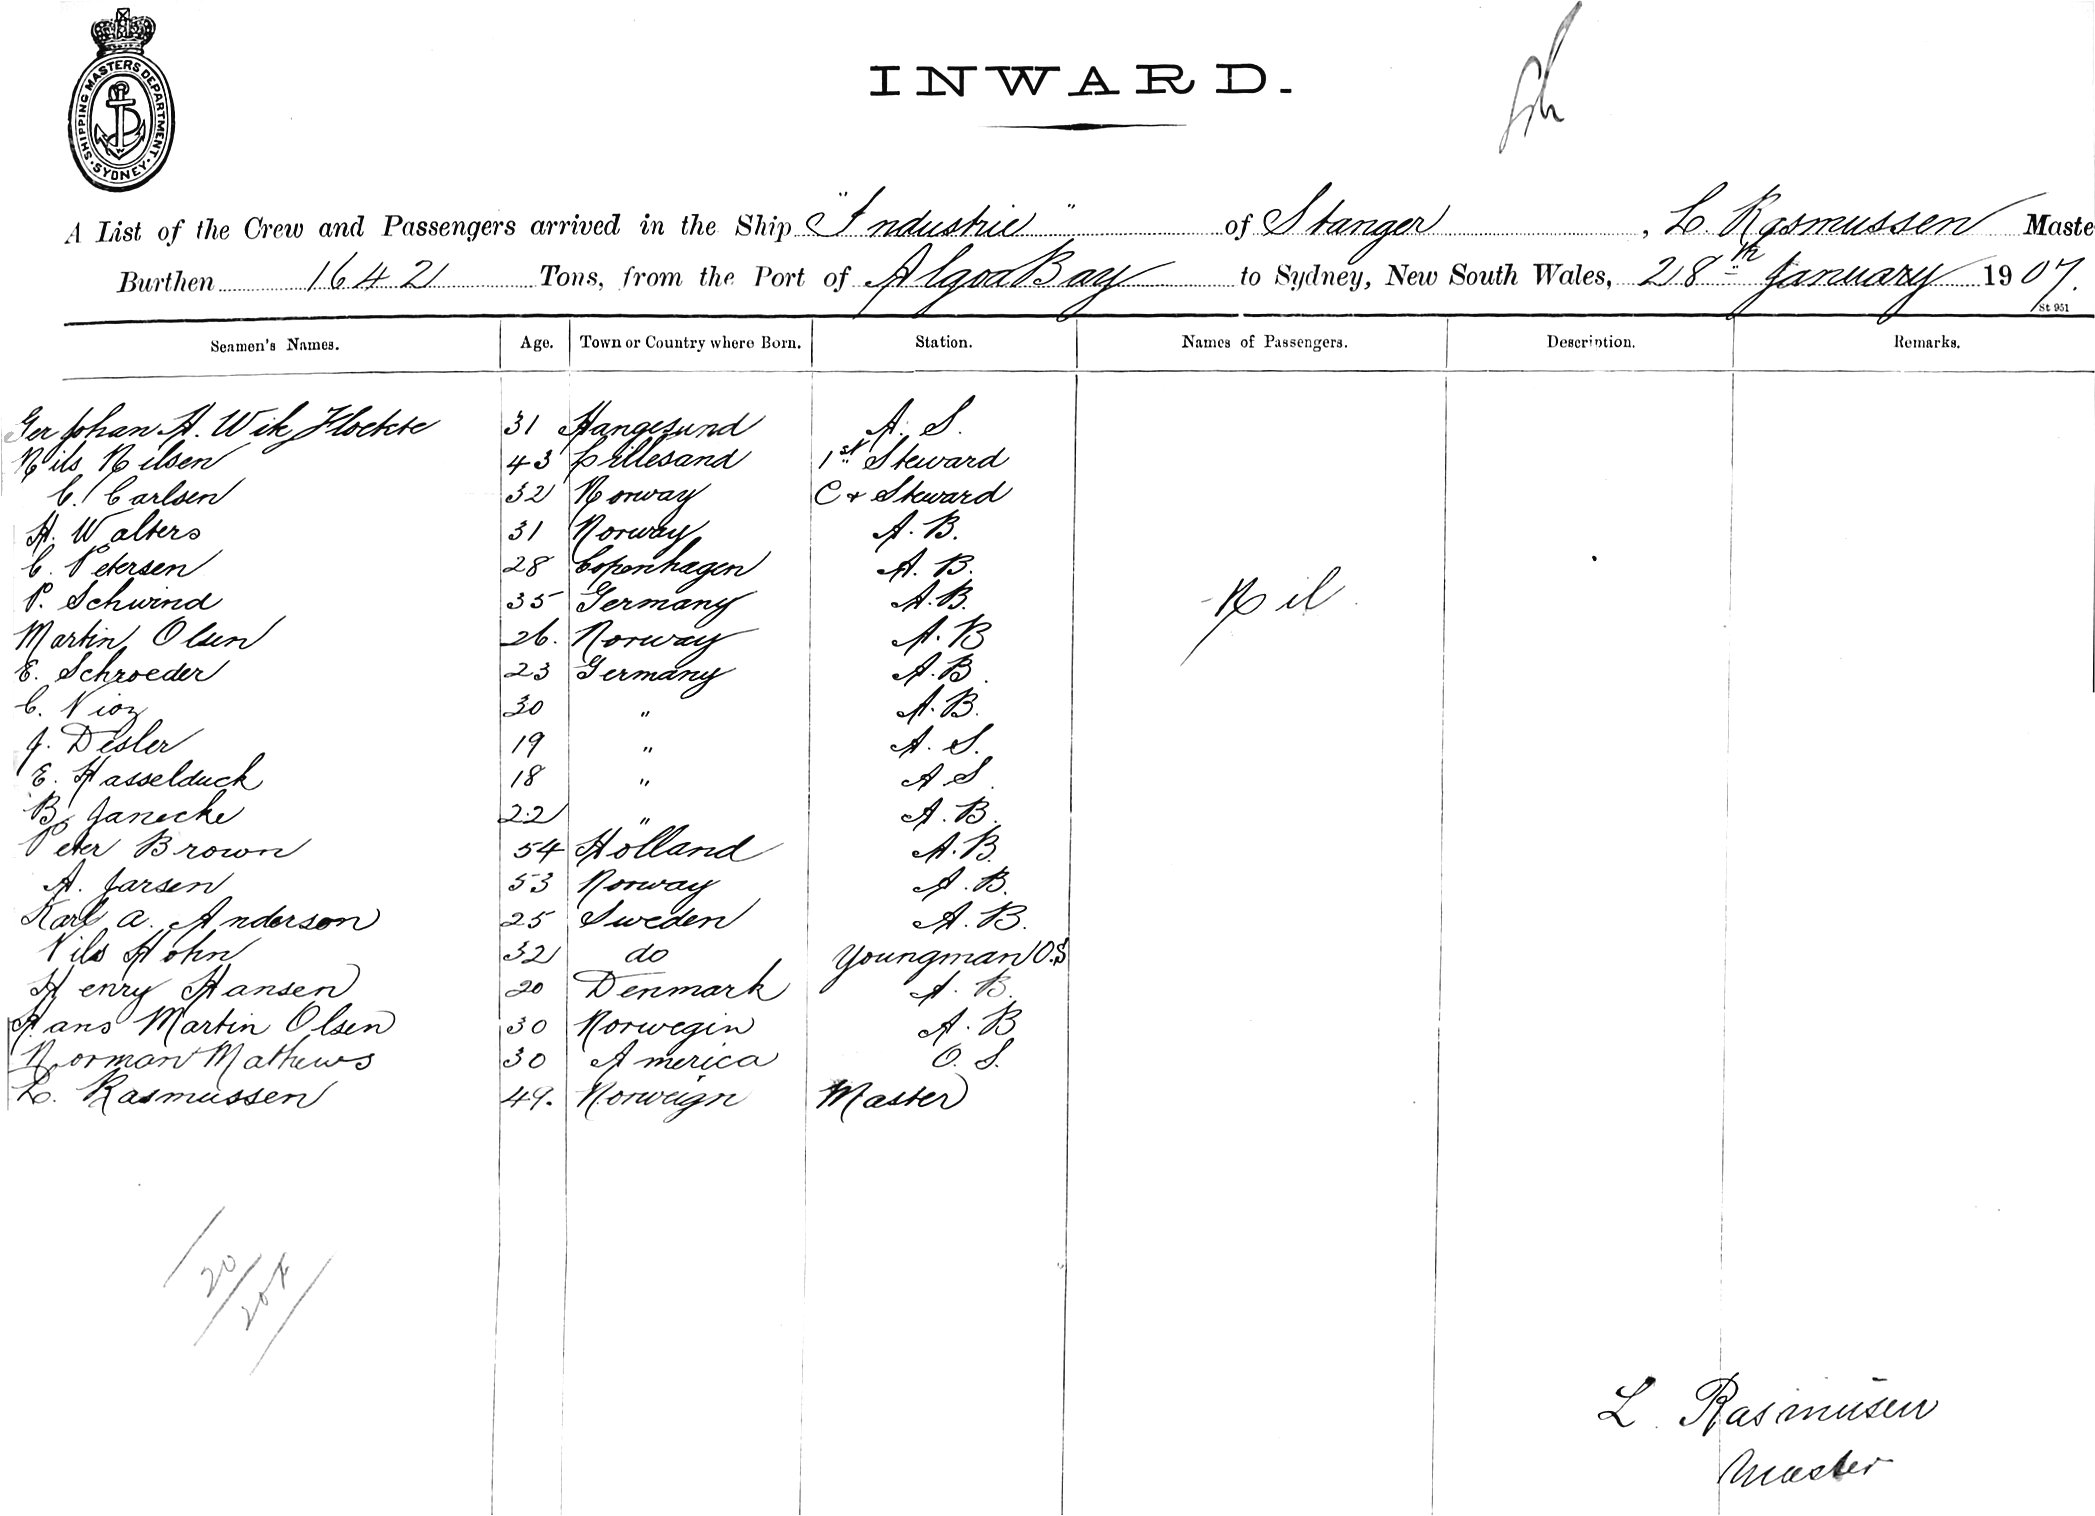 SHIPPING MASTERS DEPARTMENT. SYDNEY
INWARD.
A List of the Crew and Passengers arrived in the Ship "Industrie" of Stanger, L. Rasmussen Maste
Burthen 1642 Tons, from the Port of Algoa Bay to Sydney, New South Wales, 28th January 1907.
St 951
Seamen's Names. Age. Town or Country where Born. Station. Names of Passengers. Description. Remarks.
Johan A. Wik 31 Hangesund A. S.
Nils Nilsen 43 Lillesand 1st Steward
C. Carlsen 32 Norway C & Steward
H. Walters 31 Norway A. B.
C. Petersen 28 Copenhagen A. B.
P. Schwind 35 Germany A. B. Nil
Martin Olsen 26. Norway A. B
E. Schroeder 23 Germany A. B.
C. 30 " A. B.
J. Desler 19 " A. S.
E. Hasselduck 18 " A S
B. Janecke 22 " A. B.
Peter Brown 54 Holland A. B.
A. Jarsen 53 Norway A. B.
Karl A. Anderson 25 Sweden A. B.
Nils Hohn 32 do Youngman O.S
Henry Hansen 20 Denmark A. B.
Hans Martin Olsen 30 Norwegin A. B
Norman Mathews 30 America O. S.
L. Rasmussen 49. Norweign Master
20
L. Rasmüsen
Master